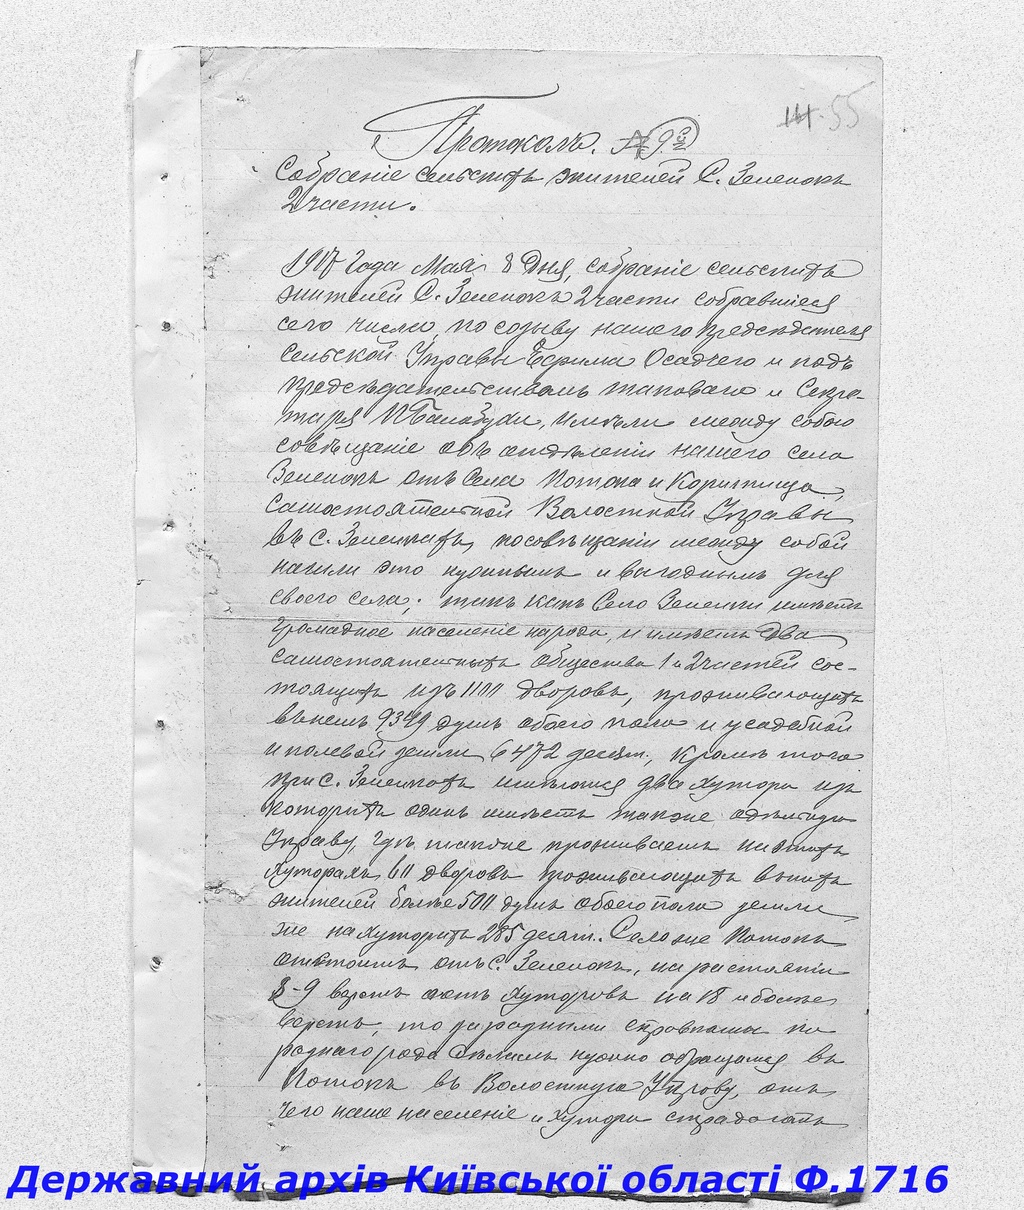 55
Протоколъ. № 9
Собраніе сельскихъ жителей С. Зеленокъ
2 части.
1917 года Мая 8 дня, собраніе сельскихъ
жителей С. Зеленокъ 2 части собравшіеся
сего числа, по созыву нашего Предсѣдателя
Сельской Управы Ефима Осадчего и подъ
предсѣдательствомъ таковаго и Секре-
таря, имѣли между собою
совѣщаніе объ отдѣленіи нашего села
Зеленокъ отъ Села Потока и
самостоятельной Волостной Управы
въ С. Зеленкахъ, посовѣщаніи между собой
нашли это нужнымъ и выгоднымъ для
своего села; такъ какъ Село Зеленки имѣетъ
громадное населеніе народа, и имѣетъ два
самостоятельныхъ общества 1 и 2 частей сос-
тоящихъ изъ 1100 дворовъ, проживающихъ
въ немъ 9349 душъ обоего пола и усадебной
и полевой земли 6472 десят., кромѣ того
при С. Зеленкахъ имѣются два Хутора изъ
которыхъ одинъ имѣетъ также
Управу, гдѣ также проживаетъ на этихъ
Хуторахъ 60 дворовъ проживающихъ въ нихъ
жителей болѣе 500 душъ обоего пола земли
же на Хуторахъ 285 десят. Село же Потокъ
отстоитъ отъ С. Зеленокъ, на растояніи
8-9 верстъ отъ Хуторовъ на 18 и болѣе
верстъ, то за разными справками по
разнаго рода дѣламъ нужно обращаться въ
Потокъ въ Волостную Управу, отъ
чего наше населеніе и Хутора страдаютъ
Державний архів Київської області Ф.1716